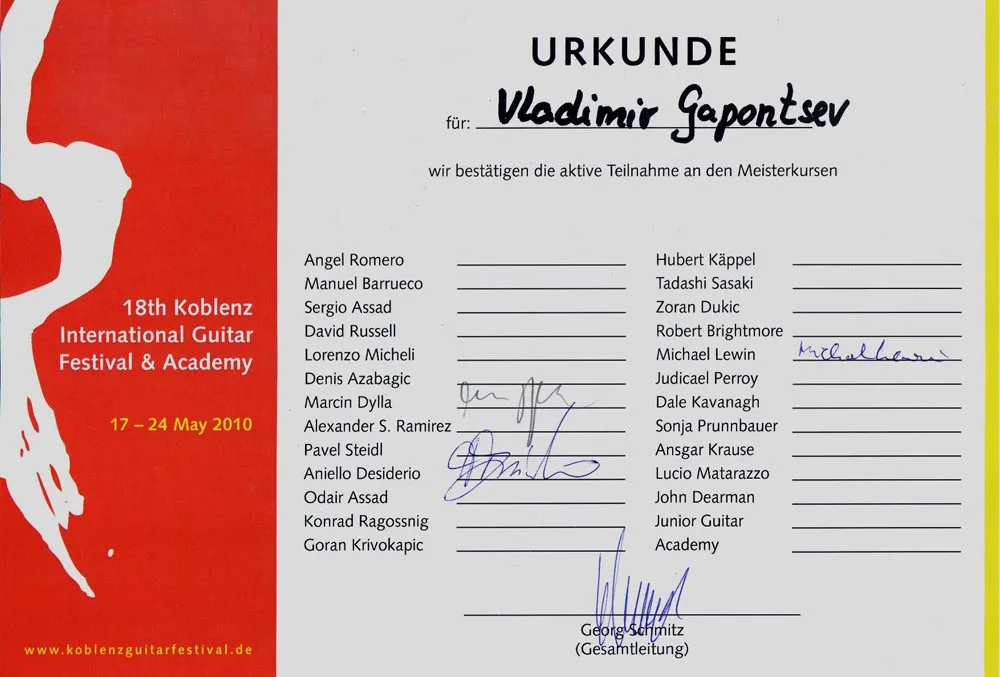 URKUNDE
für: Vladimir Gapontsev
wir bestätigen die aktive Teilnahme an den Meisterkursen
18th Koblenz
International Guitar
Festival & Academy
17 – 24 May 2010
www.koblenzguitarfestival.de
Angel Romero
Manuel Barrueco
Sergio Assad
David Russell
Lorenzo Micheli
Denis Azabagic
Marcin Dylla
Alexander S. Ramirez
Pavel Steidl
Aniello Desiderio
Odair Assad
Konrad Ragossnig
Goran Krivokapic
Hubert Käppel
Tadashi Sasaki
Zoran Dukic
Robert Brightmore
Michael Lewin
Judicael Perroy
Dale Kavanagh
Sonja Prunnbauer
Ansgar Krause
Lucio Matarazzo
John Dearman
Junior Guitar
Academy
Georg Schmitz
(Gesamtleitung)